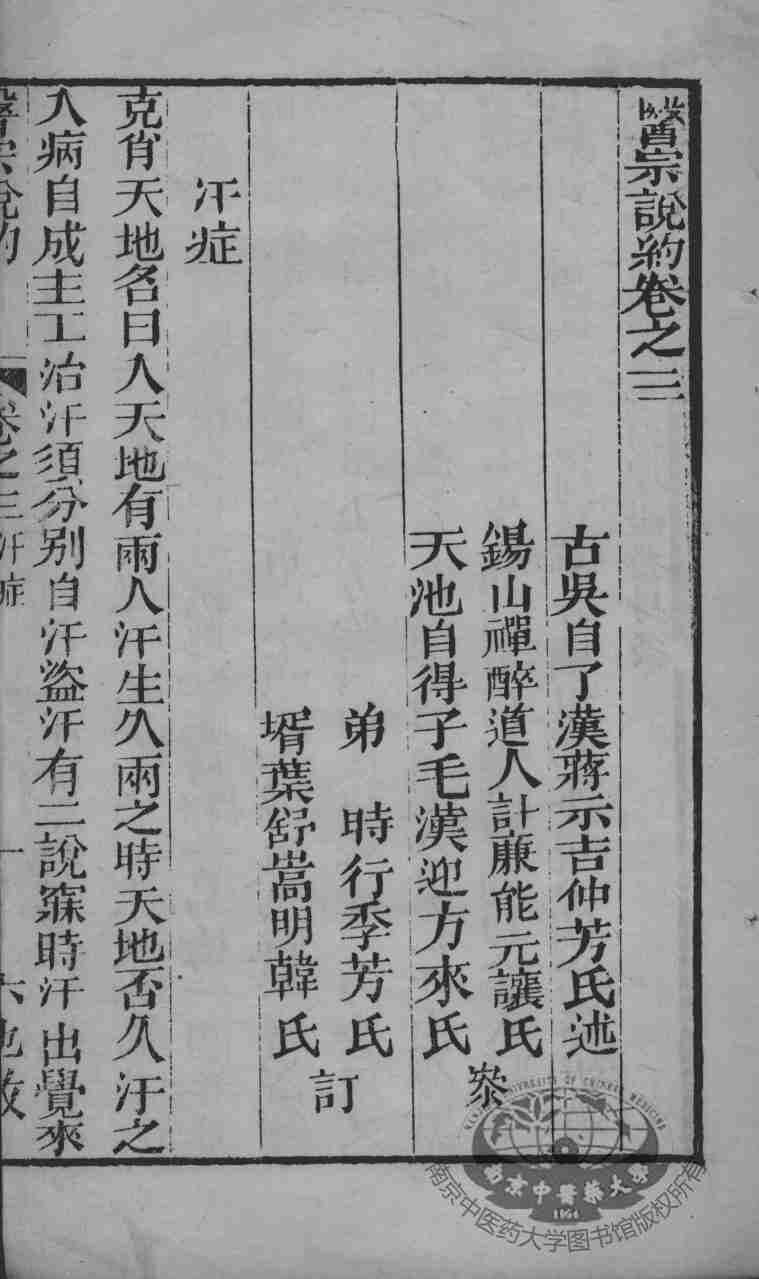 醫宗說約卷之三
古吳自了漢蔣示吉仲芳氏述
錫山禪醉道人計廉能元讓氏
天池自得子毛漢迎方來氏
叅
弟 時行季芳氏
壻葉舒嵩明韓氏
訂
汗症
克肖天地名曰人天地有雨人汗生久雨之時天地否久汗之
人病自成主工治汗須分別自汗盜汗有二說寐時汗出覺來
醫宗說約 卷之三汗症 一
南京中醫藥大學
1954
NANJING UNIVERSITY OF CHINESE MEDICINE
南京中医药大学图书馆版权所有